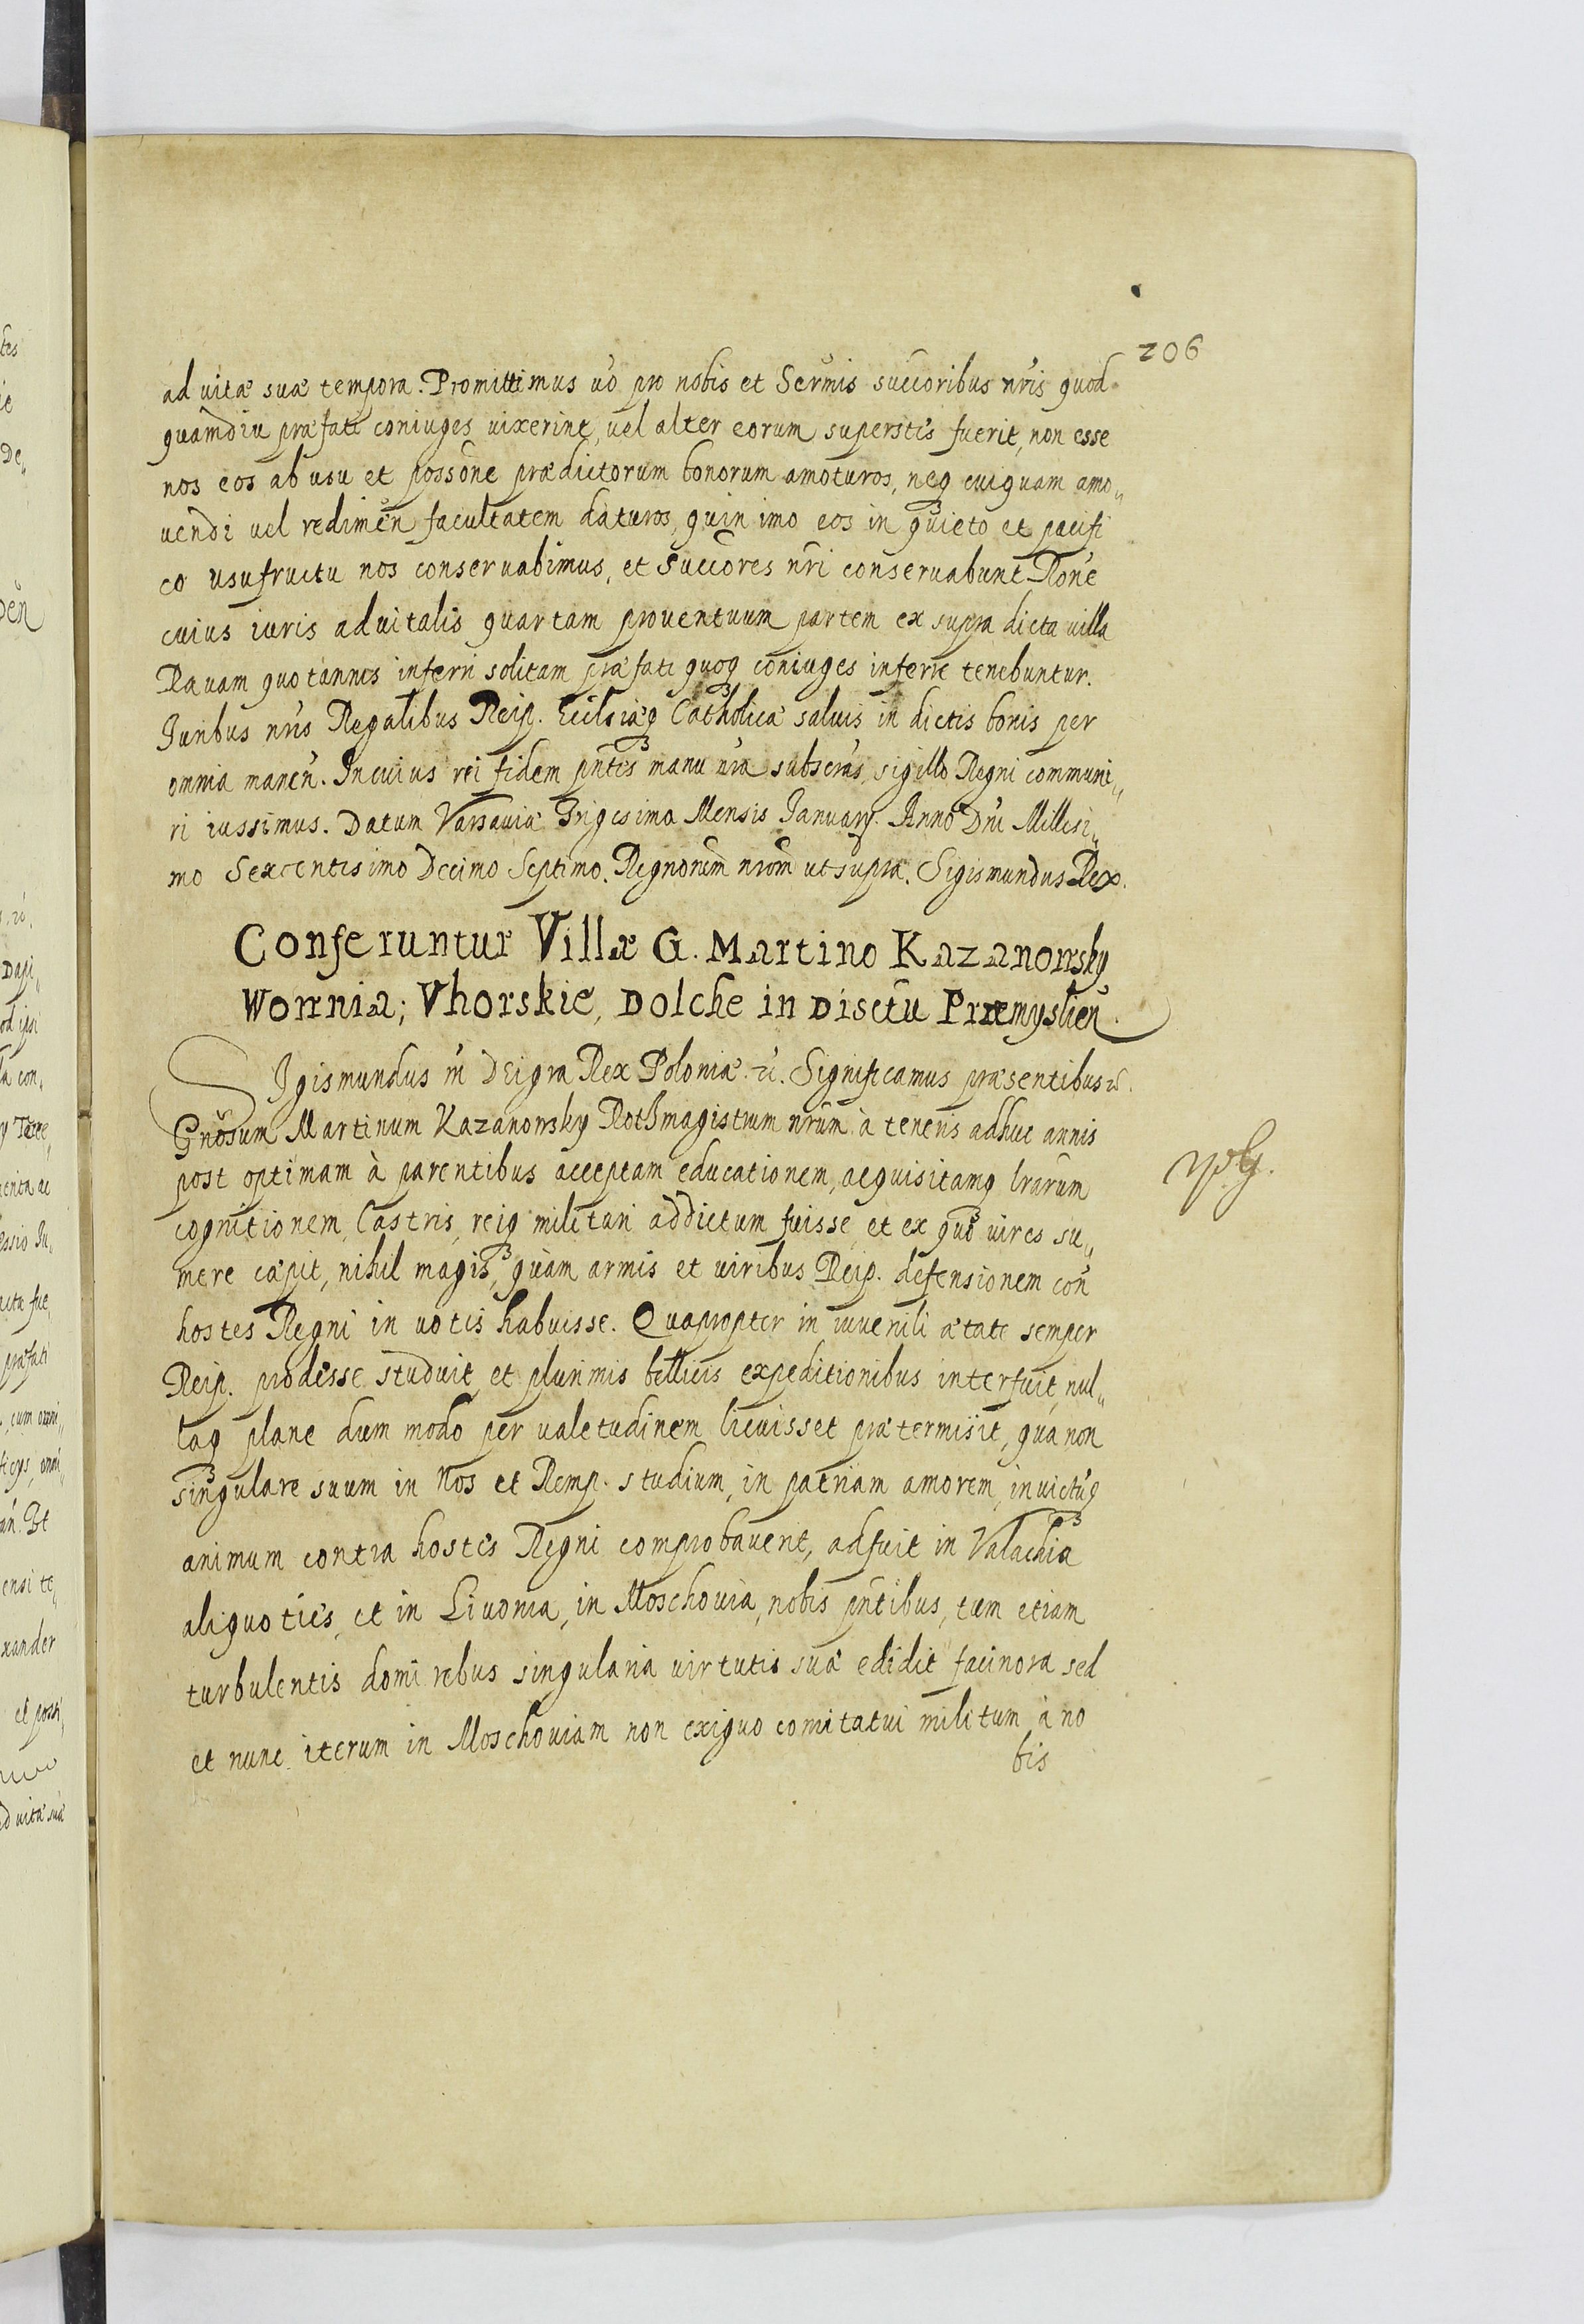 206
ad vitæ suæ tempora. Promittimus vo̅ pro nobis et Sermis succoribus nr̅is quod
quamdiu præfati coniuges vixerint, vel alter eorum superstes fuerit, non esse
nos eos ab usu et posso̅ne prædictorum bonorum amoturos, neq cuiquam amo„
vendi vel redimen̅ facultatem daturos, quin imo eos in quieto et pacifi
co usufructu nos conservabimus, et Succores nr̅i conservabunt Ro̅ne
cuius iuris advitalis quartam proventuum partem ex supra dicta villa
Ravam quotannis inferri solitam præfati quoq coniuges inferre tenebuntur.
Iuribus nr̅is Regalibus Reip. Ecclsiæq Catholicæ salvis in dictis bonis per
omnia manen̅. In cuius rei fidem pn̅tes manu nr̅a subscras̅, sigillo Regni communi„
ri iussimus. Datum Varsaviæ Trigesima Mensis Ianuarij. Anno Dn̅i Millesi„
mo Sexcentesimo Decimo Septimo. Regnorum nrom̅ ut supra. Sigismundus Rex.
Conferuntur Villæ G. Martino Kazanowsky
Wownia; Vhorskie, Dolche in Disctu̅ Præmyslien̅.
SIgismundus III Dei gra Rex Poloniæ. &. Significamus præsentibus &.
Gn̅osum Martinum Kazanowsky Rothmagistrum nr̅um à teneris adhuc annis
post optimam à parentibus acceptam educationem, acquisitamq lrarum̅
cognitionem, Castris, reiq militari addictum fuisse, et ex quo vires su„
mere cæpit, nihil magis, quàm armis et viribus Reip. defensionem con̅
hostes Regni in votis habuisse. Quapropter in iuvenili ætate semper
Reip. prodesse studuit, et plurimis bellicis expeditionibus interfuit, nul„
laq plane dum modo per valetudinem licuisset prætermisit, qua non
singulare suum in Nos et Remp. studium, in patriam amorem, invictu̅q
animum contra hostes Regni comprobaverit, adfuit in Valachia
aliquoties, et in Livonia, in Moschovia, nobis pn̅tibus, tum etiam
turbulentis domi rebus singularia virtutis suæ edidit facinora sed
et nunc iterum in Moschoviam non exiguo comitatui militum à no
bis